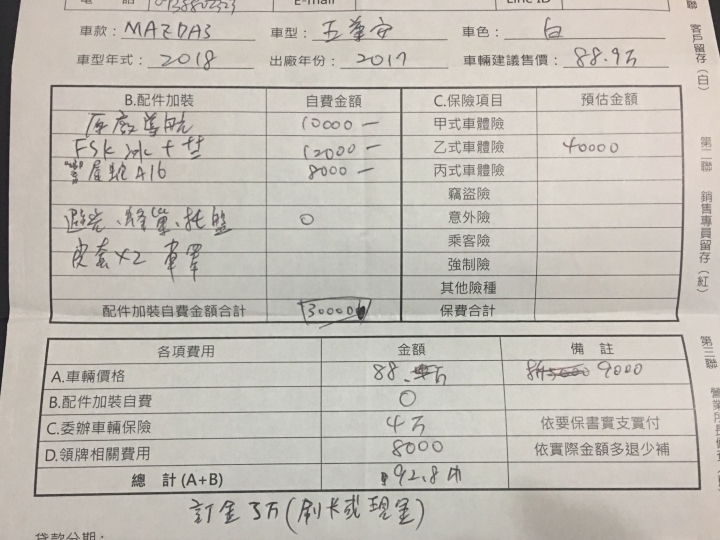 E-mail Line ID
車款：MAZDA3 車型：五華安 車色：白
車型年式：2018 出廠年份：2017 車輛建議售價：88.9万
B.配件加裝 自費金額 C.保險項目 預估金額
原廠導航 10000－ 甲式車體險
FSK冰十 12000－ 乙式車體險 40000
A16 8000－ 丙式車體險
竊盜險
避光、蜂巢、托盤 0 意外險
皮套×2 車罩 乘客險
強制險
其他險種
配件加裝自費金額合計 30000 保費合計
各項費用 金額 備 註
A.車輛價格 88. 万 9000
B.配件加裝自費 0
C.委辦車輛保險 4万 依要保書實支實付
D.領牌相關費用 8000 依實際金額多退少補
總 計 (A+B) 92.8
訂金3万(刷卡或現金)
貸款分期：
客戶留存（白）
第二聯 銷售專員留存（紅）
第三聯